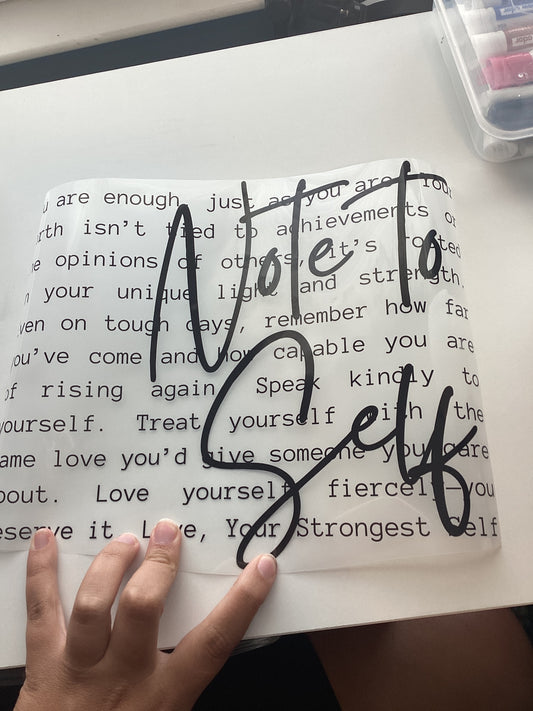 Note To
Self
u are enough, just as you are. Your
rth isn't tied to achievements or
e opinions of others, it's rooted
n your unique light and strength.
ven on tough days, remember how far
you've come and how capable you are
of rising again. Speak kindly to
yourself. Treat yourself with the
ame love you'd give someone you care
bout. Love yourself fiercely—you
eserve it. Love, Your Strongest Self